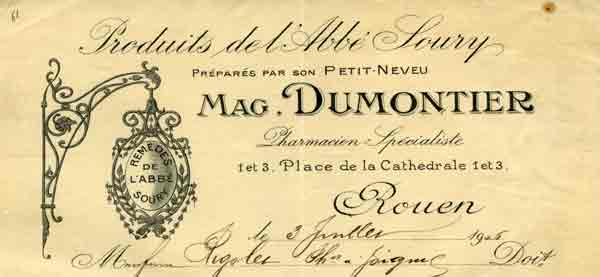 61
Produits de l'Abbé Soury
Préparés par son Petit-Neveu
Mag. DUMONTIER
Pharmacien-Spécialiste
1 et 3. Place de la Cathédrale 1 et 3.
Rouen
REMÈDES
DE
L'ABBÉ
SOURY
le 3 Juillet 190
Rigoles Doit